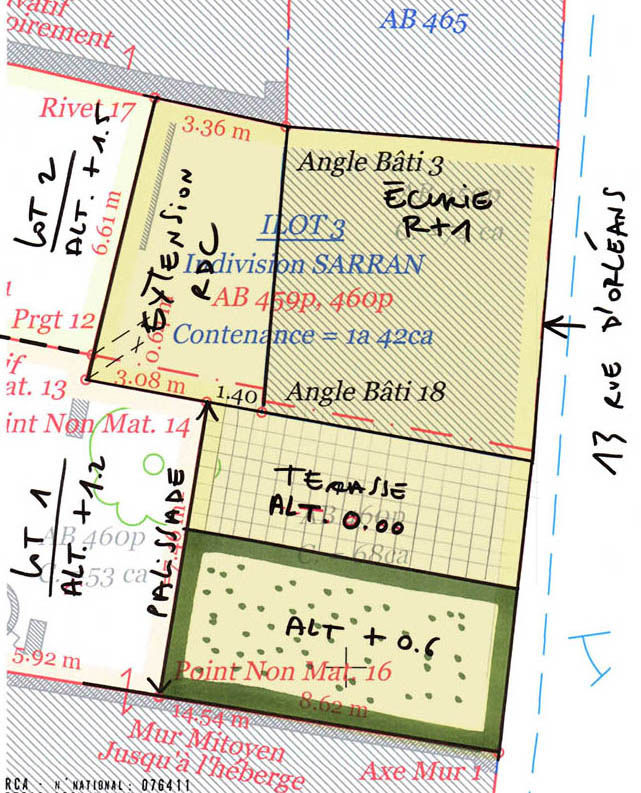 AB 465
vatif
oirement
Rivet 17
3.36 m
Angle Bâti 3
ÉCURIE
R+1
LOT 2
ALT. +1.5
6.61 m
EXTENSION
RDC
ILOT 3
Indivision SARRAN
AB 459p, 460p
Contenance = 1a 42ca
13 RUE D'ORLÉANS
Prgt 12
if
at. 13
3.08 m
1.40
Angle Bâti 18
int Non Mat. 14
LOT 1
ALT. +1.2
PALISSADE
TERRASSE
ALT. 0.00
AB 460p
C. = 68ca
AB 460p
53 ca
ALT + 0.6
5.92 m
Point Non Mat. 16
8.62 m
14.54 m
Mur Mitoyen
Jusqu'à l'héberge
Axe Mur 1
RCA - N°NATIONAL: 076411